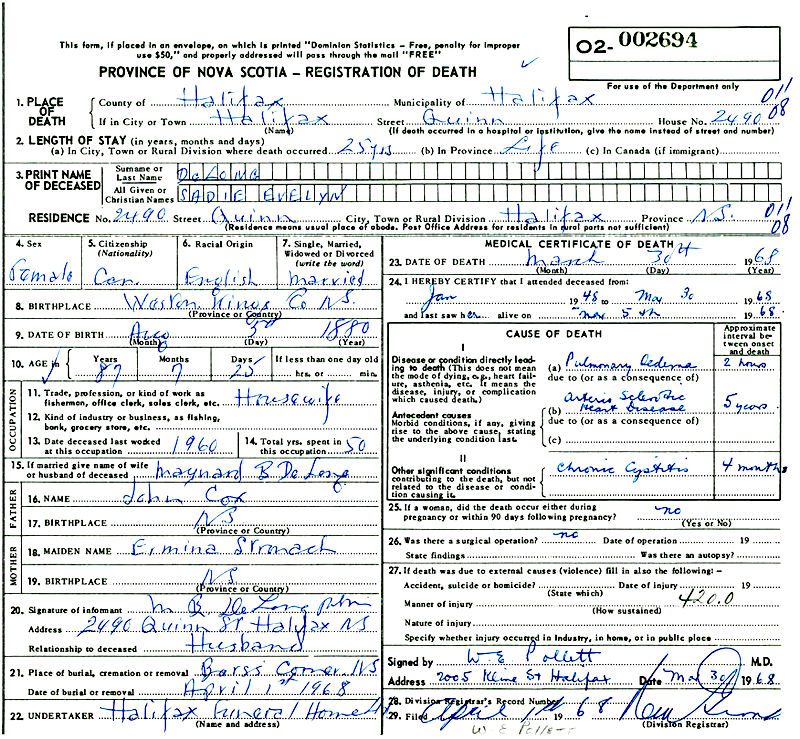 This form, if placed in an envelope, on which is printed "Dominion Statistics – Free, penalty for improper
use $50," and properly addressed will pass through the mail "FREE"
O2- 002694
PROVINCE OF NOVA SCOTIA – REGISTRATION OF DEATH
For use of the Department only
1. PLACE OF DEATH
County of Halifax Municipality of Halifax 011
If in City or Town Halifax Street Quinn House No. 2490 08
(Name) (If death occurred in a hospital or institution, give the name instead of street and number)
2. LENGTH OF STAY (in years, months and days)
(a) In City, Town or Rural Division where death occurred 25 yrs (b) In Province Life (c) In Canada (if immigrant)
3. PRINT NAME OF DECEASED
Surname or Last Name DeLONG
All Given or Christian Names SADIE EVELYN
RESIDENCE No. 2490 Street Quinn City, Town or Rural Division Halifax Province N.S. 011 08
(Residence means usual place of abode. Post Office Address for residents in rural parts not sufficient)
4. Sex Female
5. Citizenship (Nationality) Can.
6. Racial Origin English
7. Single, Married, Widowed or Divorced (write the word) married
8. BIRTHPLACE Weston Kings Co NS.
(Province or Country)
9. DATE OF BIRTH Aug 5th 1880
(Month) (Day) (Year)
10. AGE in Years Months Days If less than one day old
87 7 25 hrs. or min.
OCCUPATION
11. Trade, profession, or kind of work as fishermon, office clerk, sales clerk, etc. Housewife
12. Kind of industry or business, as fishing, bonk, grocery store, etc.
13. Date deceased last worked at this occupation 1960
14. Total yrs. spent in this occupation 50
15. If married give name of wife or husband of deceased Maynard B DeLong
FATHER
16. NAME John Cox
17. BIRTHPLACE NS
(Province or Country)
MOTHER
18. MAIDEN NAME Ermina Stronach
19. BIRTHPLACE NS
(Province or Country)
20. Signature of informant M B DeLong
Address 2490 Quinn St Halifax NS
Relationship to deceased Husband
21. Place of burial, cremation or removal Barss Corner NS
Date of burial or removal April 1st 1968
22. UNDERTAKER Halifax Funeral Home Ltd
(Name and address)
MEDICAL CERTIFICATE OF DEATH
23. DATE OF DEATH March 30th 1968
(Month) (Day) (Year)
24. I HEREBY CERTIFY that I attended deceased from:
Jan 1948 to Mar 30 1968
and last saw her alive on Mar 5th 1968
CAUSE OF DEATH
Approximate interval between onset and death
I
Disease or condition directly leading to death (This does not mean the mode of dying, e.g., heart failure, asthenia, etc. It means the disease, injury, or complication which caused death.)
(a) Pulmonary Oedema 2 hours
due to (or as a consequence of)
Antecedent causes
Morbid conditions, if any, giving rise to the above cause, stating the underlying condition last.
(b) Arterio Sclerotic Heart Disease 5 years
due to (or as a consequence of)
(c)
II
Other significant conditions contributing to the death, but not related to the disease or condition causing it.
Chronic Cystitis 4 months
25. If a woman, did the death occur either during pregnancy or within 90 days following pregnancy? no
(Yes or No)
26. Was there a surgical operation? no Date of operation 19
State findings Was there an autopsy?
27. If death was due to external causes (violence) fill in also the following:–
Accident, suicide or homicide? Date of injury 19
(State which)
Manner of injury 420.0
(How sustained)
Nature of injury
Specify whether injury occurred in Industry, in home, or in public place
Signed by W. E Pollett M.D.
Address 2005 Kline St Halifax Date Mar 30 1968
28. Division Registrar's Record Number
29. Filed April 1st 1968
(Division Registrar)
W E Pollett